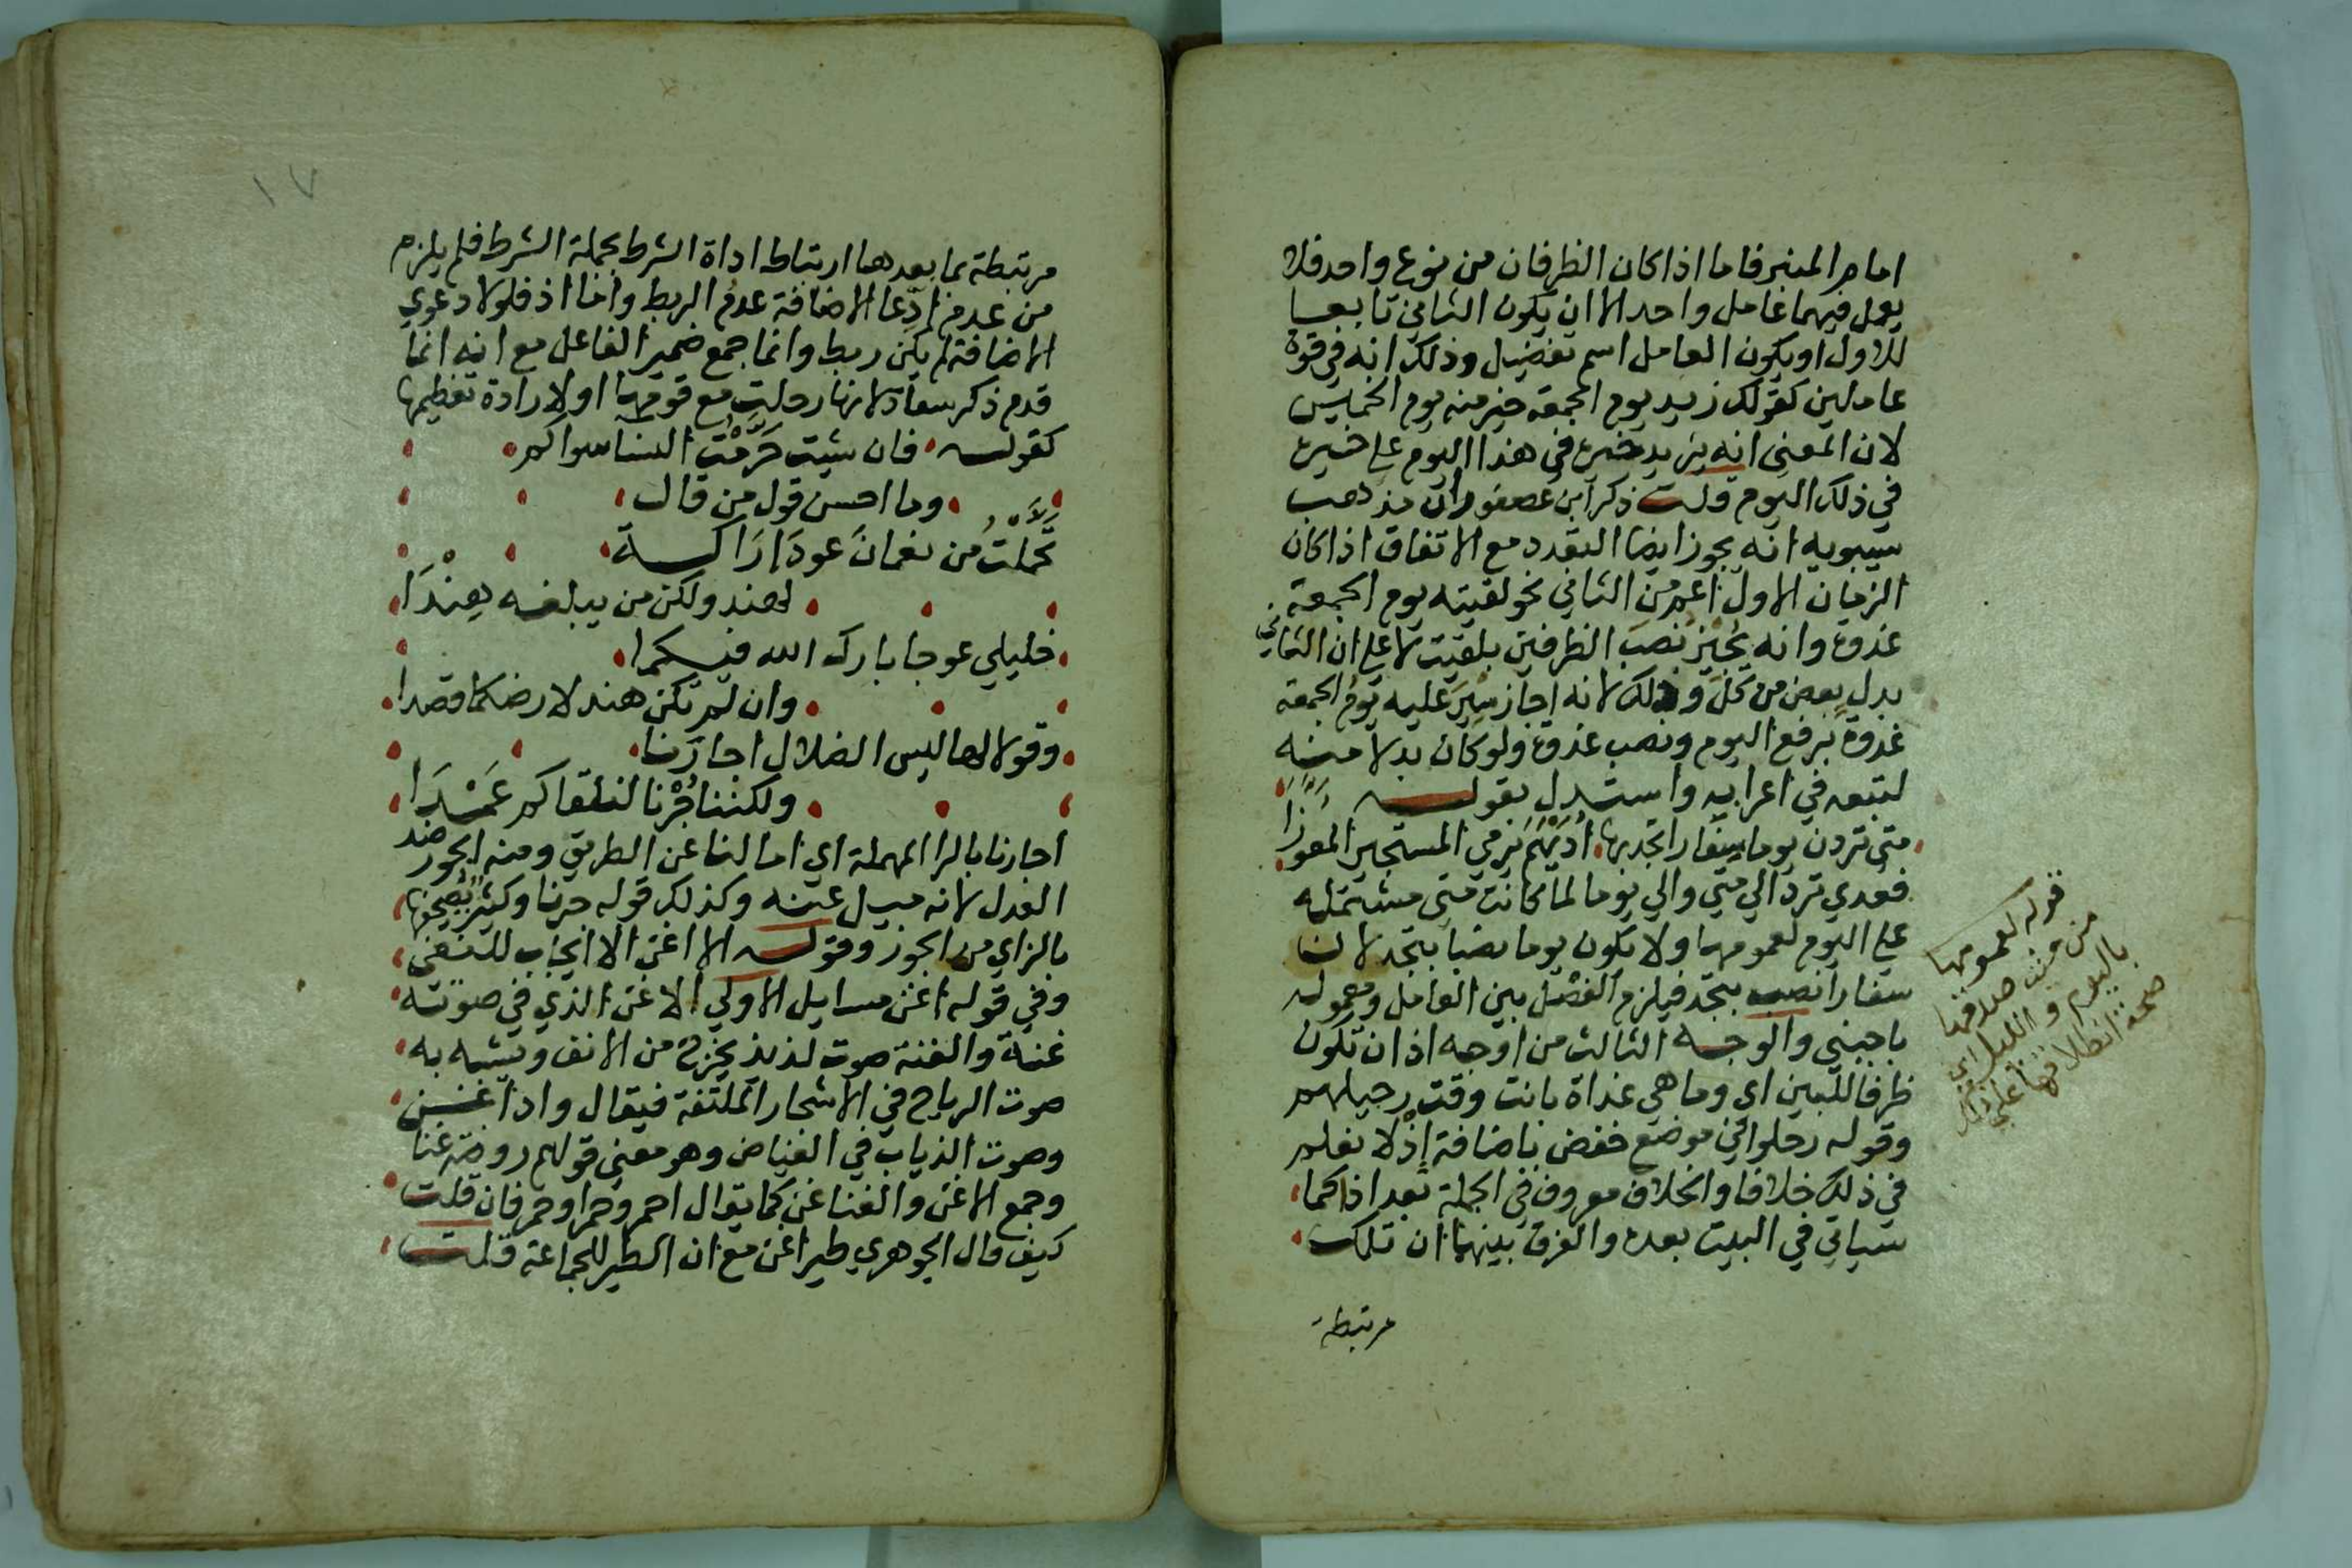 امام المنبر فاما اذا كان الظرفان من نوع واحد فلا
يعمل فيهما عامل واحد الا ان يكون الثاني تابعا
للاول او يكون العامل اسم تفضيل وذلك انه في قوة
عاملين كقولك زيد يوم الجمعة خير منه يوم الخميس
لان المعنى انه يزيد خيره في هذا اليوم على خيره
في ذلك اليوم قلت ذكر ابن عصفور ان مذهب
سيبويه انه يجوز ايضا التعدد مع الاتفاق اذا كان
الزمان الاول اعم من الثاني نحو لقيته يوم الجمعة
غدوة وانه يجيز نصب الظرفين بلقيت لا على ان الثاني
بدل بعض من كل وذلك لانه اجاز سير عليه يوم الجمعة
غدوة برفع اليوم ونصب غدوة ولو كان بدلا منه
لتبعه في اعرابه واستدل بقوله
متى تردن يوما سفار تجد بها اديهم يرمي المستجيز المعورا
فعدي ترد الى متى والى يوما لما كانت متى مشتملة
على اليوم لعمومها ولا يكون يوما نصبا بتجد لان
سفارا نصب بتجد فيلزم الفصل بين العامل ومعموله
باجنبي والوجه الثالث من اوجه اذ ان تكون
ظرفا للبين اي وما هي غداة بانت وقت رحيلهم
وقوله رحلوا في موضع خفض باضافة اذ لا نعلم
في ذلك خلافا والخلاف معروف في الجملة بعد اذا كما
سياتي في البيت بعده والفرق بينهما ان تلك
مرتبطة
قوله لعمومها
من حيث صدقها
باليوم والليل اي
صحة انطلاقها على ذلك
١٧
مرتبطة بما بعدها ارتباط اداة الشرط بجملة الشرط فلم يلزم
من عدم ادعا الاضافة عدم الربط واما اذ فلولا دعوي
الاضافة لم يكن ربط وانما جمع ضمير الفاعل مع انه انما
قدم ذكر سعاد لانها رحلت مع قومها او لارادة تعظيمها
كقوله فان شيت حرمت النسا سواكم
وما احسن قول من قال
تحملت من نعمان عود اراكة
لهند ولكن من يبلغه هندا
خليلي عوجا بارك الله فيكما
وان لم تكن هند لارضكما قصدا
وقولا لها ليس الضلال اجارنا
ولكننا جرنا لنلقاكم عمدا
اجارنا بالرا المهملة اي امالنا عن الطريق ومنه الجور ضد
العدل لانه ميل عنه وكذلك قوله جرنا وكثير يصحفها
بالزاي من الجوز وقوله الا اغن الا ايجاب للنفي
وفي قوله اغن مسايل الاولي الاغن الذي في صوته
غنة والغنة صوت لذيذ يخرج من الانف ويشبه به
صوت الرياح في الاشجار الملتفة فيقال واد اغن
وصوت الذباب في الغياض وهو معنى قولهم روضة غنا
وجمع الاغن والغنا غن كما يقال احمر وحمرا وحمر فان قلت
كيف قال الجوهري طير اغن مع ان الطير للجماعة قلت